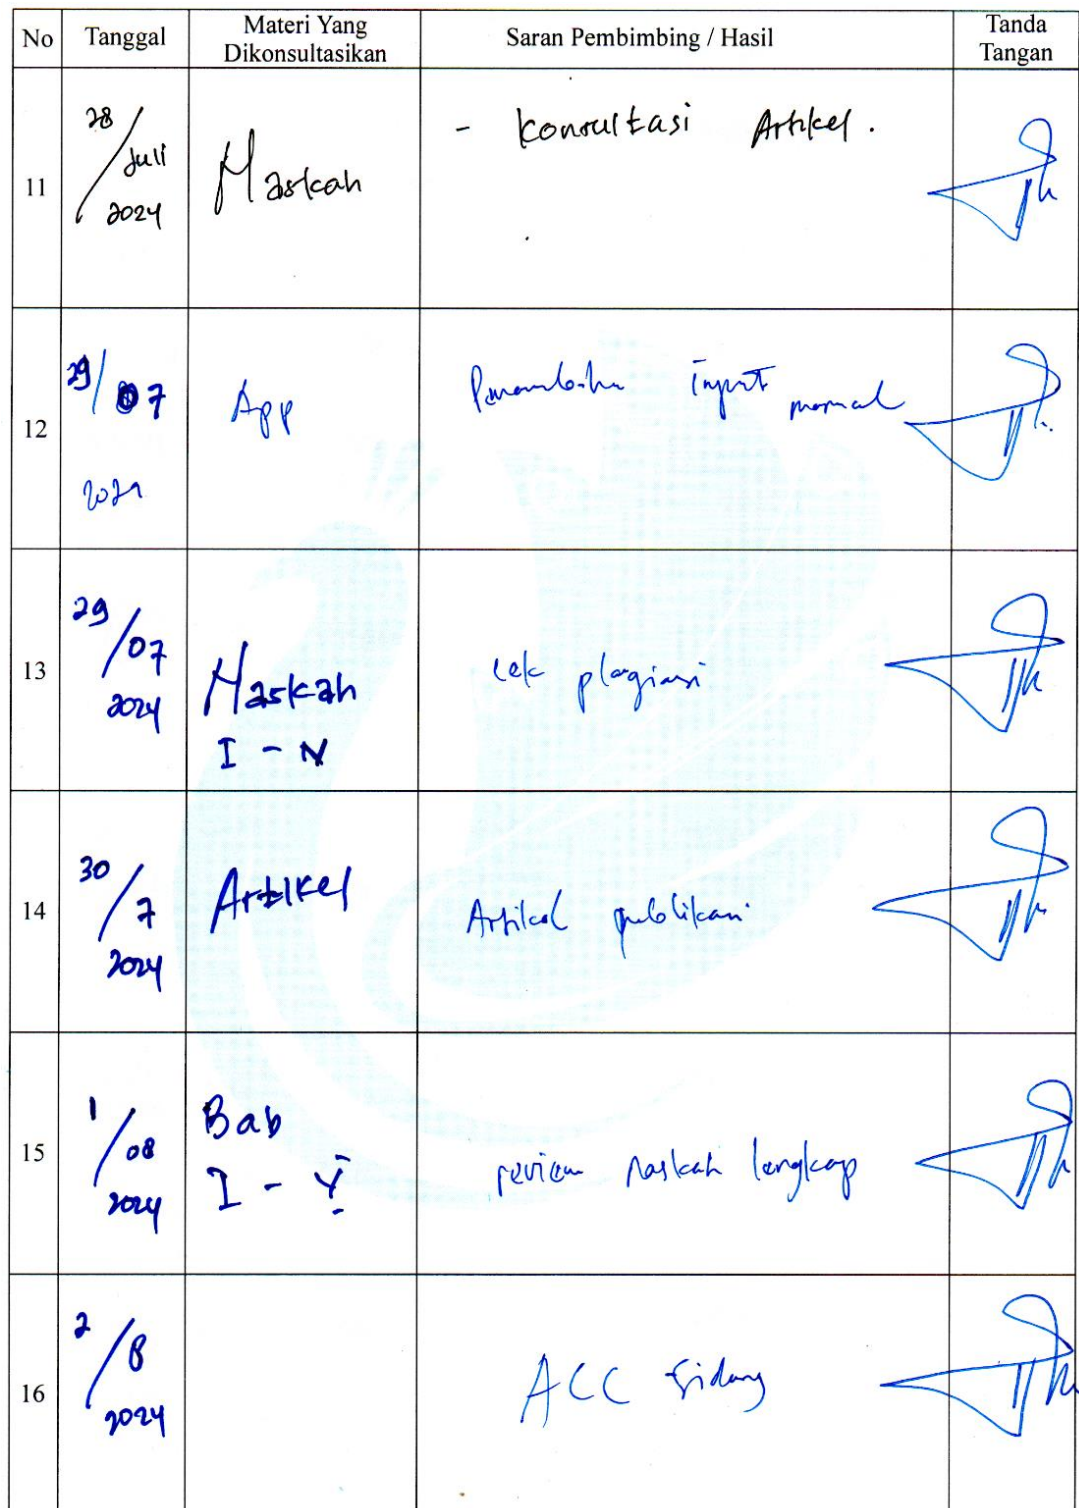 No Tanggal Materi Yang Dikonsultasikan Saran Pembimbing / Hasil Tanda Tangan
11 28/Juli 2024 Naskah - Konsultasi Artikel.
12 29/07 2024 App input
13 29/07 2024 Naskah I - IV cek plagiasi
14 30/7 2024 Artikel Artikel publikasi
15 1/08 2024 Bab I - V review naskah lengkap
16 2/8 2024 ACC Sidang